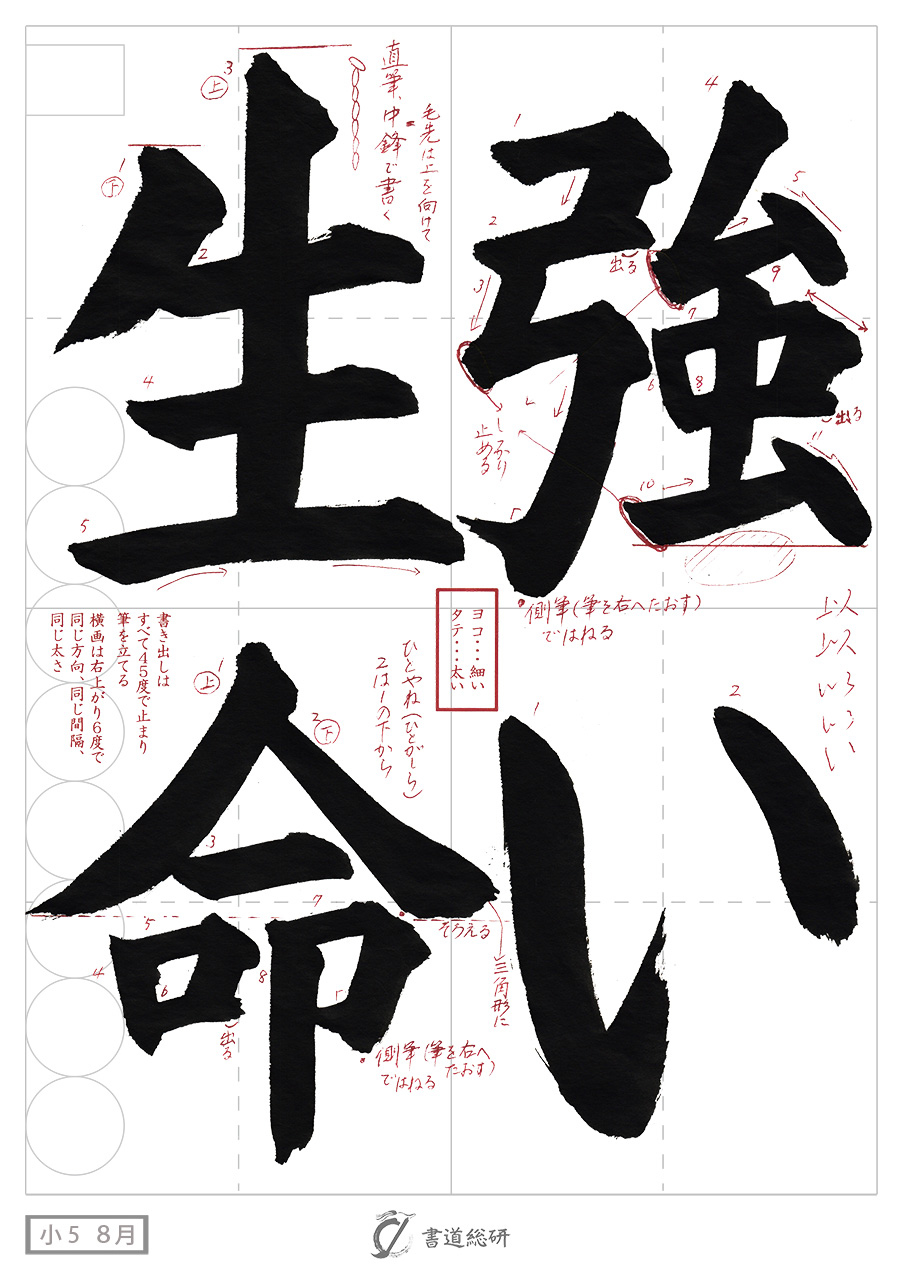 強い
生命
直筆、中鋒で書く
毛先は上を向けて
上
下
出る
しっかり
止める
出る
側筆(筆を右へたおす)
ではねる
以
以
い
い
い
ヨコ・・・細い
タテ・・・太い
書き出しは
すべて45度で止まり
筆を立てる
横画は右上がり6度で
同じ方向、同じ間隔、
同じ太さ
上
下
ひとやね(ひとがしら)
2は1の下から
そろえる
三角形に
出る
側筆(筆を右へ
たおす)
ではねる
小5 8月
書道総研